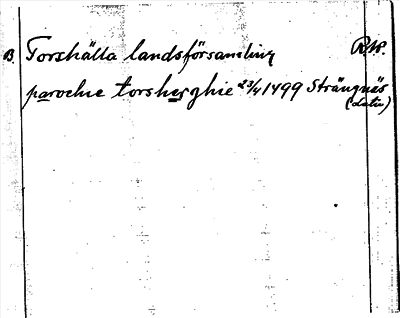 B Torshälla landsförsamling RAP.
parochie torsherghie 23/4 1499 Strängnäs
(Latin)